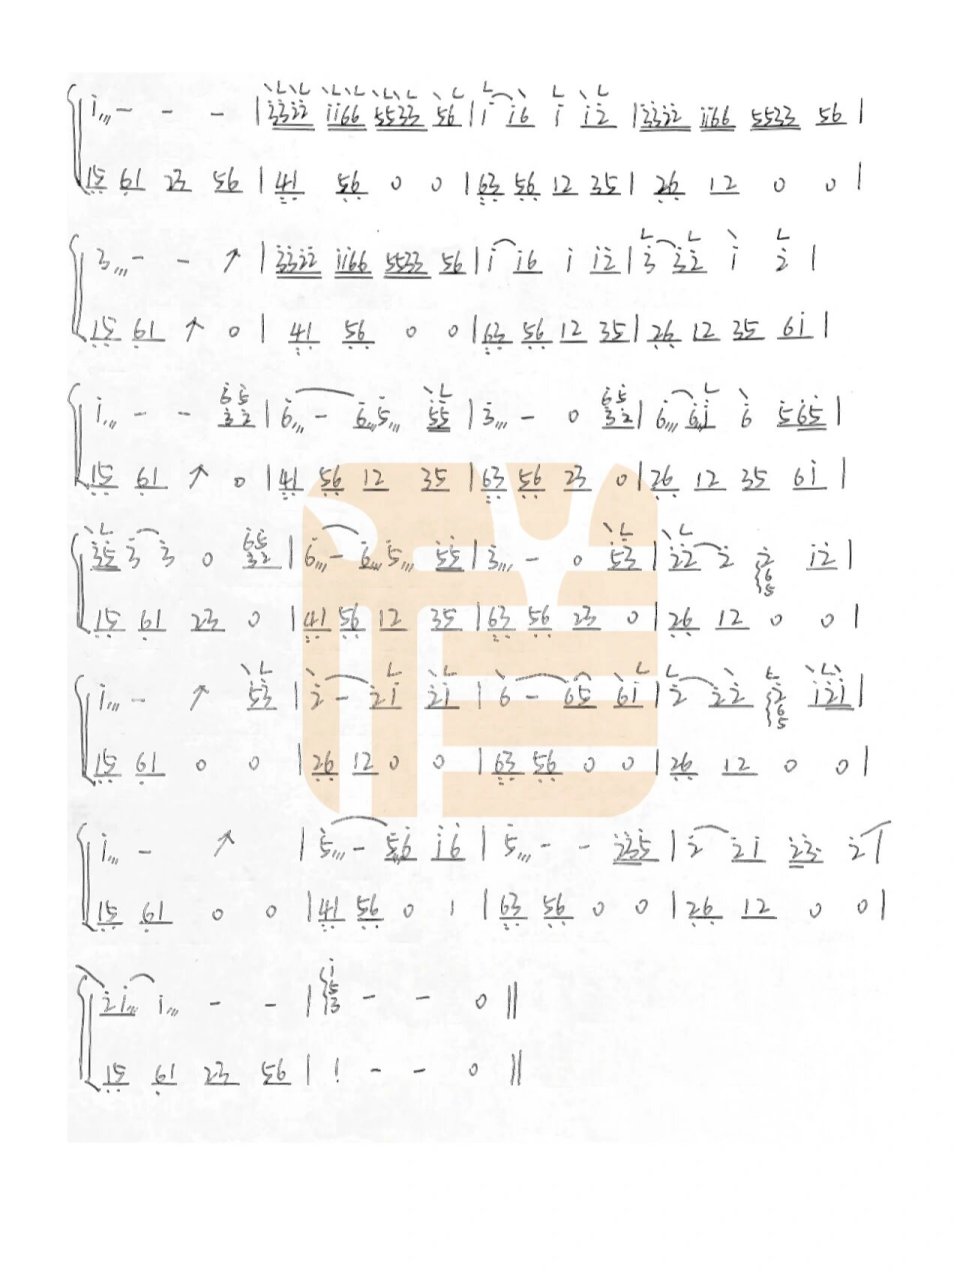 i - - - | 3322 ii66 5533 56 | i i6 i i2 | 3322 ii66 5533 56 |
15 61 23 56 | 41 56 0 0 | 63 56 12 35 | 26 12 0 0 |
3 - - ↗ | 3322 ii66 5533 56 | i i6 i i2 | 3 32 i 2 |
15 61 ↗ 0 | 41 56 0 0 | 63 56 12 35 | 26 12 35 6i |
i - - 65 32 | 6 - 65 55 | 3 - 0 65 32 | 6 6i 6 565 |
15 61 ↗ 0 | 41 56 12 35 | 63 56 23 0 | 26 12 35 6i |
35 3 3 0 65 32 | 6 - 65 55 | 3 - 0 53 | 22 2 265 i2 |
15 61 23 0 | 41 56 12 35 | 63 56 23 0 | 26 12 0 0 |
i - ↗ 53 | 2 - 2i 2i | 6 - 65 6i | 2 22 265 i2i |
15 61 0 0 | 26 12 0 0 | 63 56 0 0 | 26 12 0 0 |
i - ↗ | 5 - 56 i6 | 5 - - 235 | 2 2i 23 2 |
15 61 0 0 | 41 56 0 | 63 56 0 0 | 26 12 0 0 |
2i i - - | i53 - - 0 ||
15 61 23 56 | 1 - - 0 ||